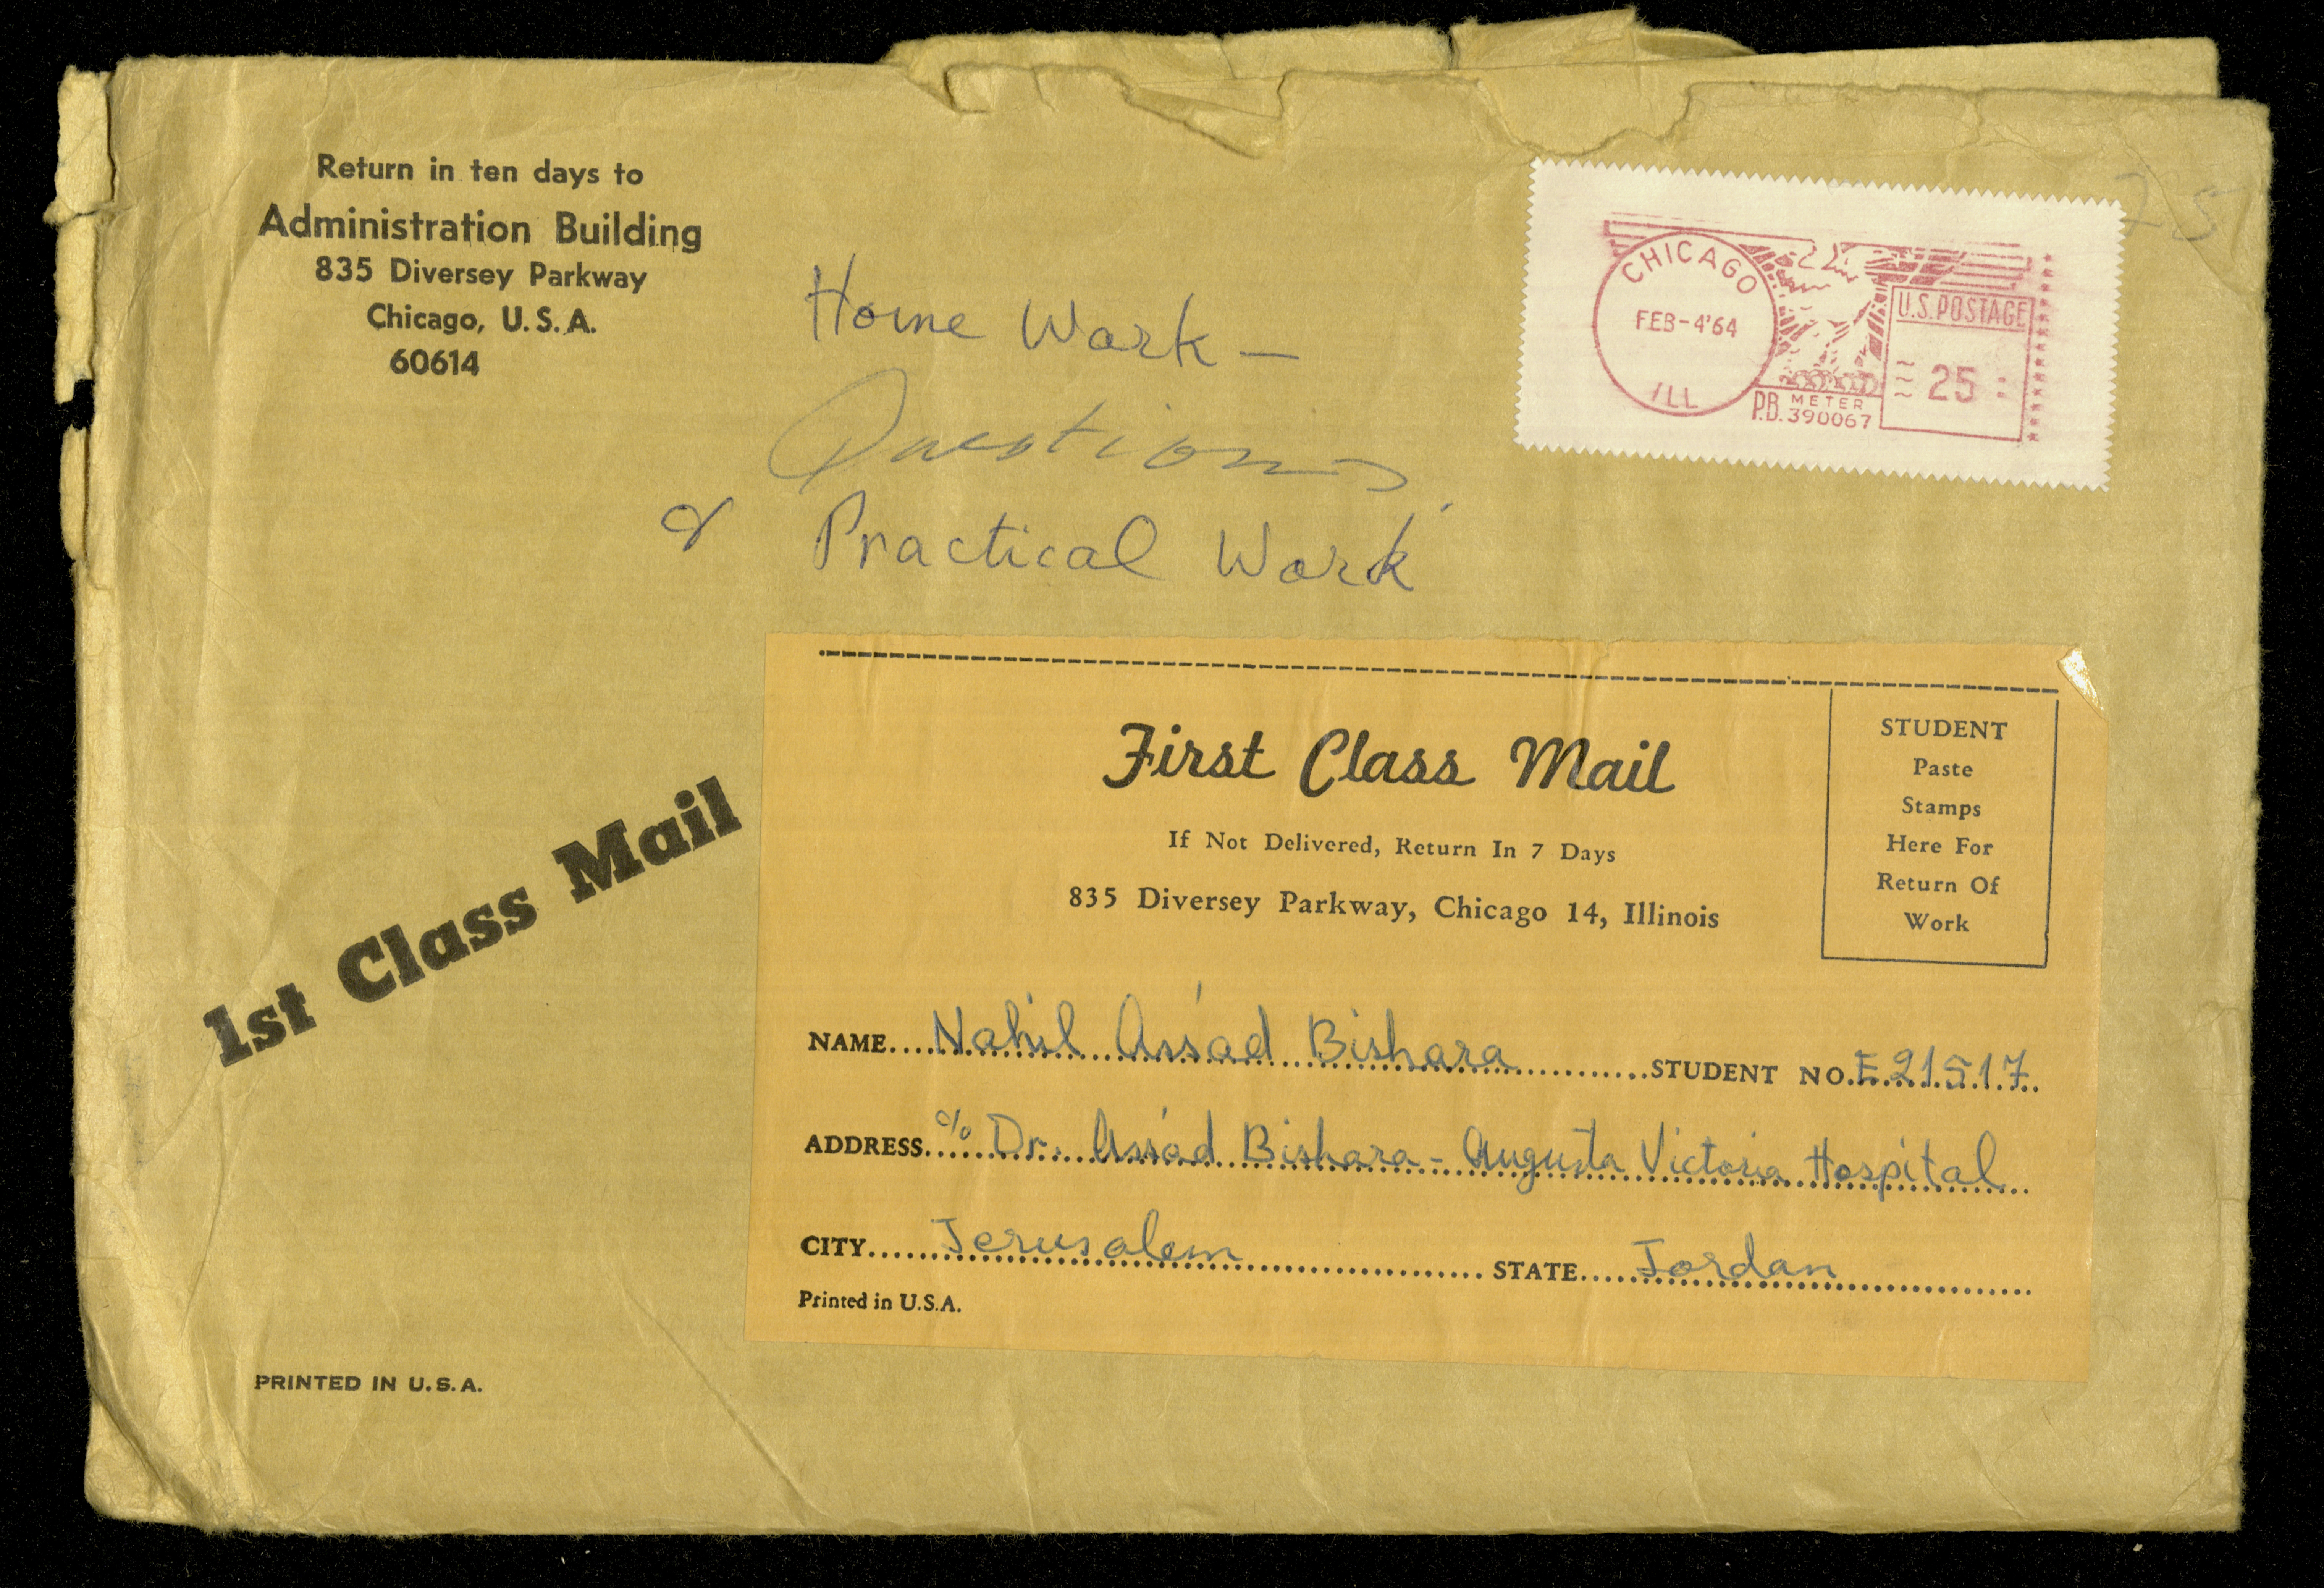 Return in ten days to
Administration Building
835 Diversey Parkway
Chicago, U.S.A.
60614
Home Work —
Questions
& Practical Work
25
CHICAGO
FEB-4'64
ILL
U.S. POSTAGE
25
P.B. METER
390067
1st Class Mail
First Class Mail
If Not Delivered, Return In 7 Days
835 Diversey Parkway, Chicago 14, Illinois
STUDENT
Paste
Stamps
Here For
Return Of
Work
NAME....Nahil Ass'ad Bishara....STUDENT NO.E.21517..
ADDRESS..c/o Dr. Ass'ad Bishara - Augusta Victoria Hospital..
CITY....Jerusalem....STATE....Jordan....
Printed in U.S.A.
PRINTED IN U.S.A.